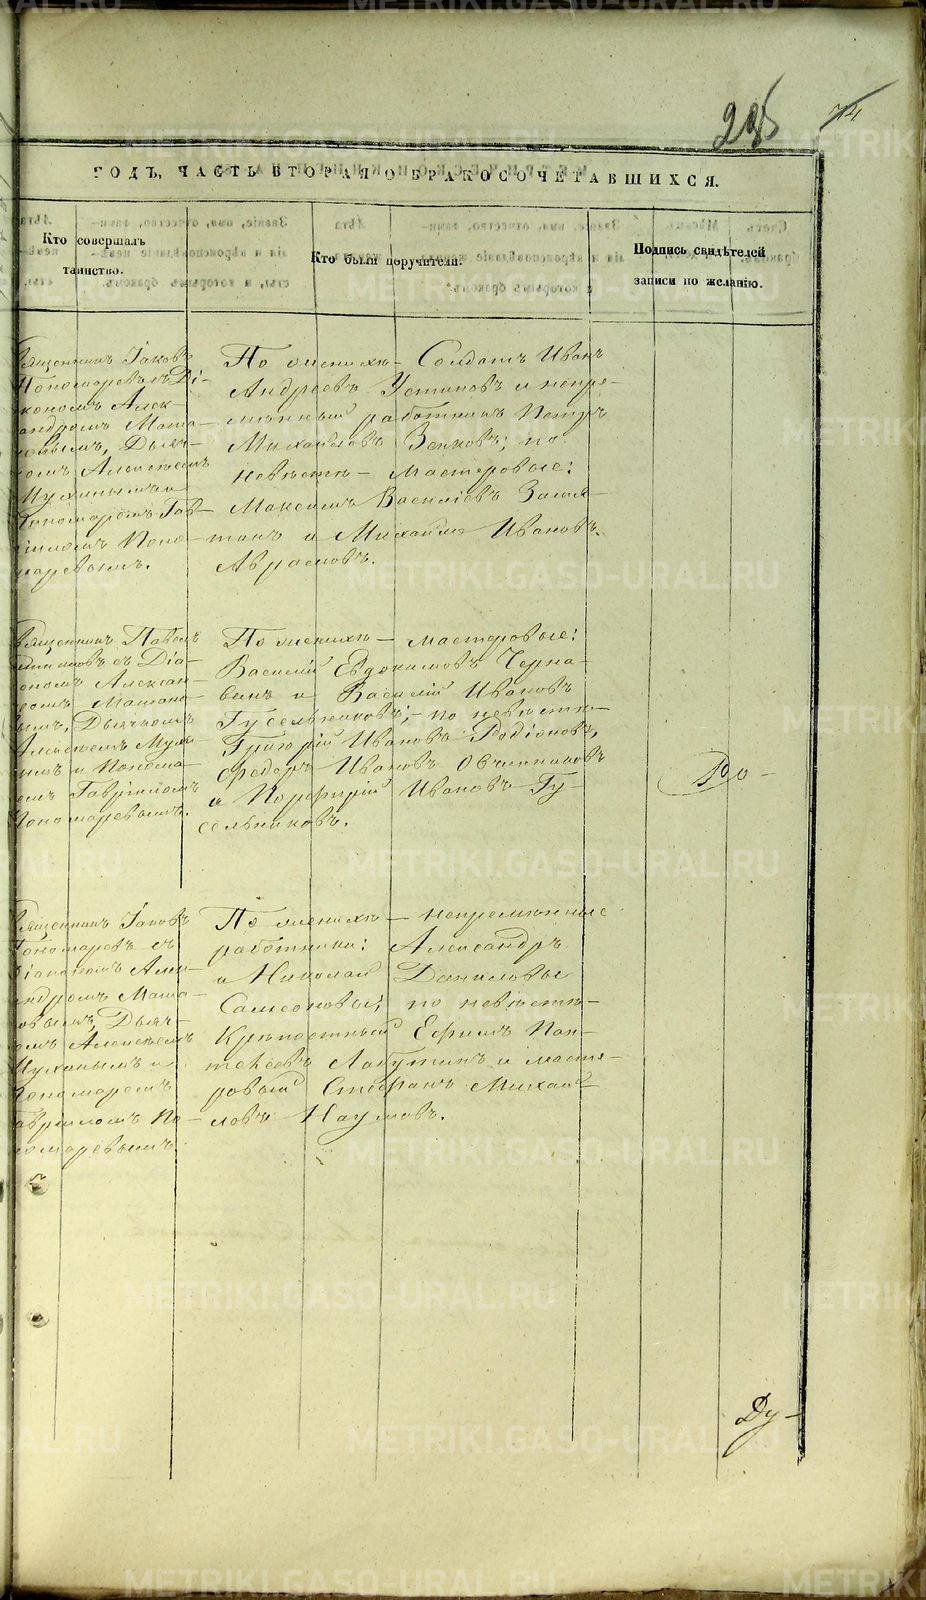 74
ГОДЪ, ЧАСТЬ ВТОРАЯ О БРАКОСОЧЕТАВШИХСЯ.
Кто совершалъ
таинство.
Кто были поручители.
Подпись свидѣтелей
записи по желанію.
Священникъ Іаковъ
Пономаревъ съ Ді-
кономъ Алек-
андромъ Маша-
новымъ, Дьяч-
комъ Алексѣемъ
Мухинымъ и
Пономаремъ Гав-
риломъ Поно-
маревымъ.
По женихѣ - Солдатъ Иванъ
Андреевъ Устиновъ и непре-
мѣнный работникъ Петръ
Михайловъ Зенковъ; по
невѣстѣ - Мастеровые:
Максимъ Василіевъ
и Михаилъ Ивановъ
Священникъ Павелъ
съ Діа-
кономъ Алексан-
дромъ Машано-
вымъ, Дьячкомъ
Алексѣемъ Мух-
нымъ и Понома-
ремъ Гавріиломъ
Пономаревымъ.
По женихѣ - мастеровые:
Василій Евдокимовъ Черна-
винъ и Василій Ивановъ
Гусельниковъ; - по невѣстѣ -
Григорій Ивановъ Родіоновъ,
Федоръ Ивановъ Овчинниковъ
и Порфирій Ивановъ Гу-
сельниковъ.
Ро -
Священникъ Іаковъ
Пономаревъ съ
Діакономъ Алек-
андромъ Маша-
новымъ, Дьяч-
комъ Алексѣемъ
Мухинымъ и
Пономаремъ
Гавриломъ По-
номаревымъ.
По женихѣ - непремѣнные
работники: Александръ
и Николай Даниловы
Самсоновы; по невѣстѣ -
Крѣпостный Ефимъ Пан-
телѣевъ Лабутинъ и масте-
ровый Стефанъ Михай-
ловъ Наумовъ.
Ду -
METRIKI.GASO-URAL.RU